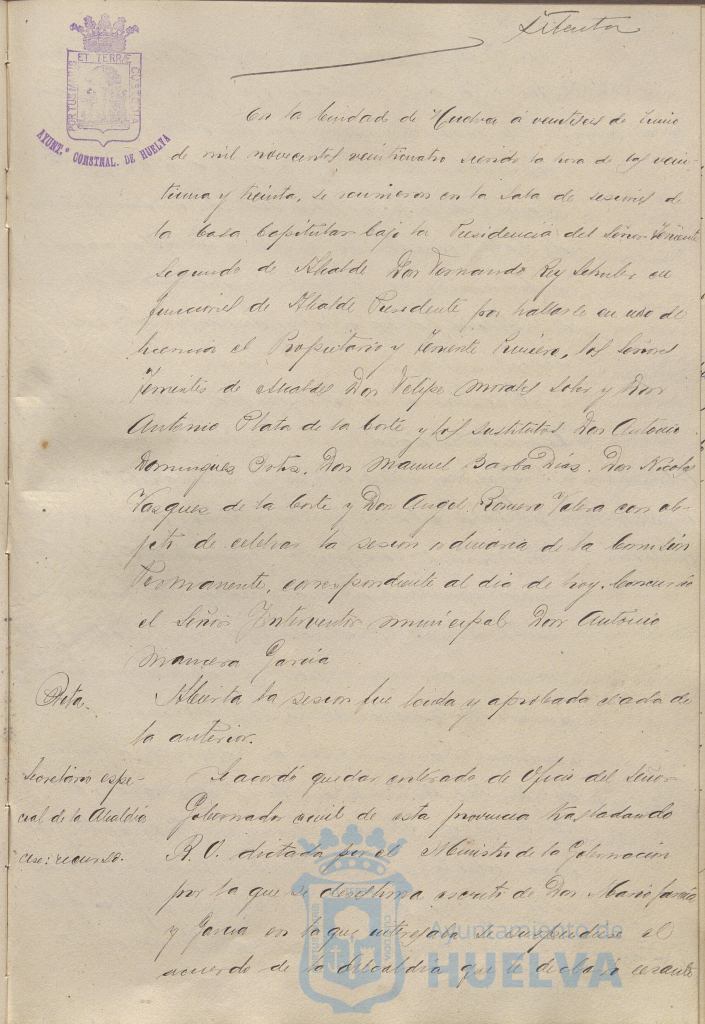 PORTUS MARIS ET TERRÆ CUSTODIA
AYUNT.º CONSTNAL. DE HUELVA
En la Ciudad de Huelva á veintiseis de Junio
de mil novecientos veinticuatro siendo la hora de las vein-
tiuna y treinta, se reunieron en la Sala de sesiones de
la Casa Capitular bajo la Presidencia del Señor Teniente
Segundo de Alcalde Don Fernando Rey en
funciones de Alcalde Presidente por hallarse en uso de
licencia el Propietario y Teniente Primero, los Señores
Tenientes de Alcaldes Don Felipe Morales y Don
Antonio Plata de la Corte y los sustitutos Don Antonio
Dominguez Ortiz, Don Manuel Barba Diaz, Don Nicolas
Vazquez de la Corte y Don Angel Romero Valera con ob-
jeto de celebrar la sesion ordinaria de la Comisión
Permanente, correspondiente al dia de hoy. Concurrio
el Señor Interventor municipal Don Antonio
Mancera Garcia
Acta.
Abierta la sesion fue leida y aprobada el acta de
la anterior.
Secretario espe-
cial de la Alcaldia
cese: recurso.
Se acordó quedar enterado de Oficio del Señor
Gobernador civil de esta provincia trasladando
R. O. dictada por el Ministro de la Gobernación
por la que se desestima escrito de Don Mario Garcia
y Garcia en la que interesaba se suspendiese el
acuerdo de la Alcaldia que le declaró cesante
Ayuntamiento de
HUELVA